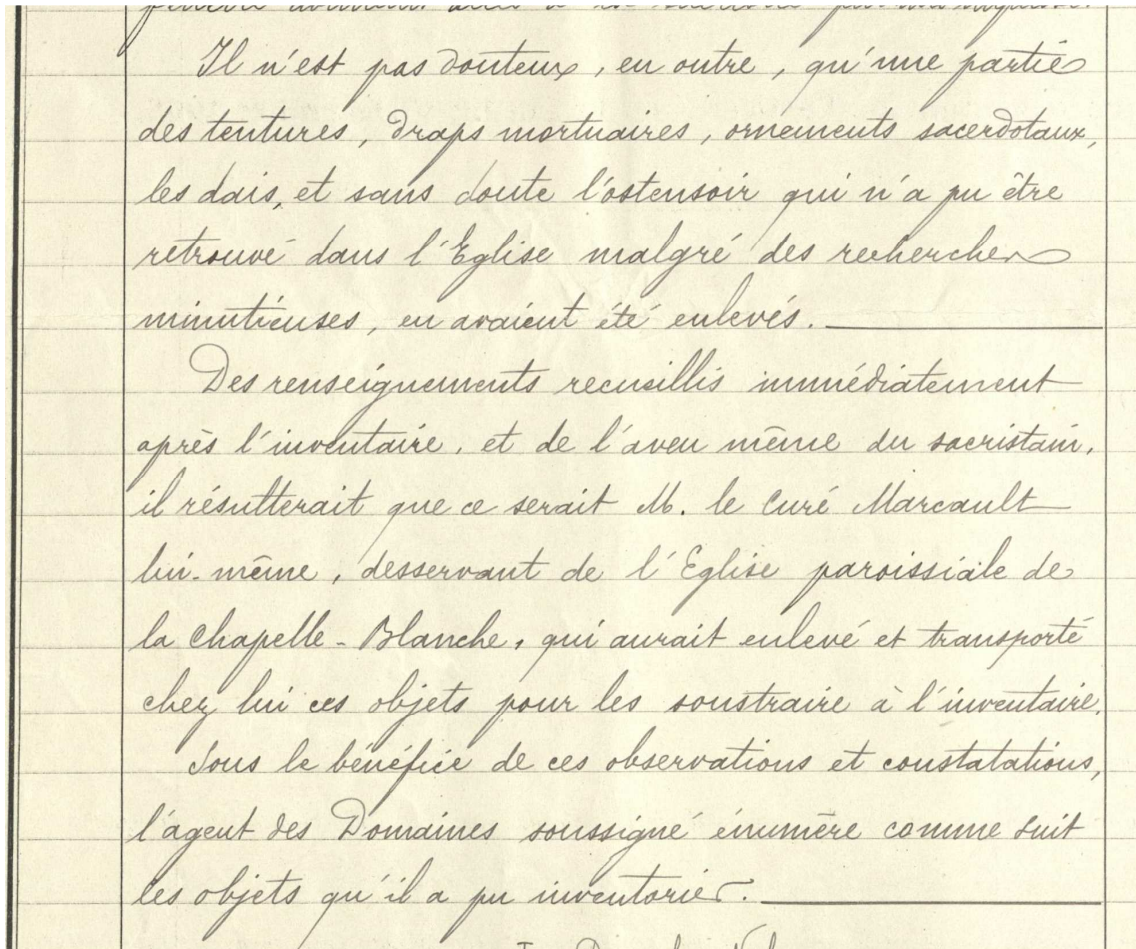 Il n'est pas douteux, en outre, qu'une partie
des tentures, draps mortuaires, ornements sacerdotaux,
les dais, et sans doute l'ostensoir qui n'a pu être
retrouvé dans l'Eglise malgré des recherches
minutieuses, en avaient été enlevés.
Des renseignements recueillis immédiatement
après l'inventaire, et de l'aveu même du sacristain,
il résulterait que ce serait M. le Curé Marcault
lui-même, desservant de l'Eglise paroissiale de
la Chapelle-Blanche, qui aurait enlevé et transporté
chez lui ces objets pour les soustraire à l'inventaire.
Sous le bénéfice de ces observations et constatations,
l'agent des Domaines soussigné énumère comme suit
les objets qu'il a pu inventorier.